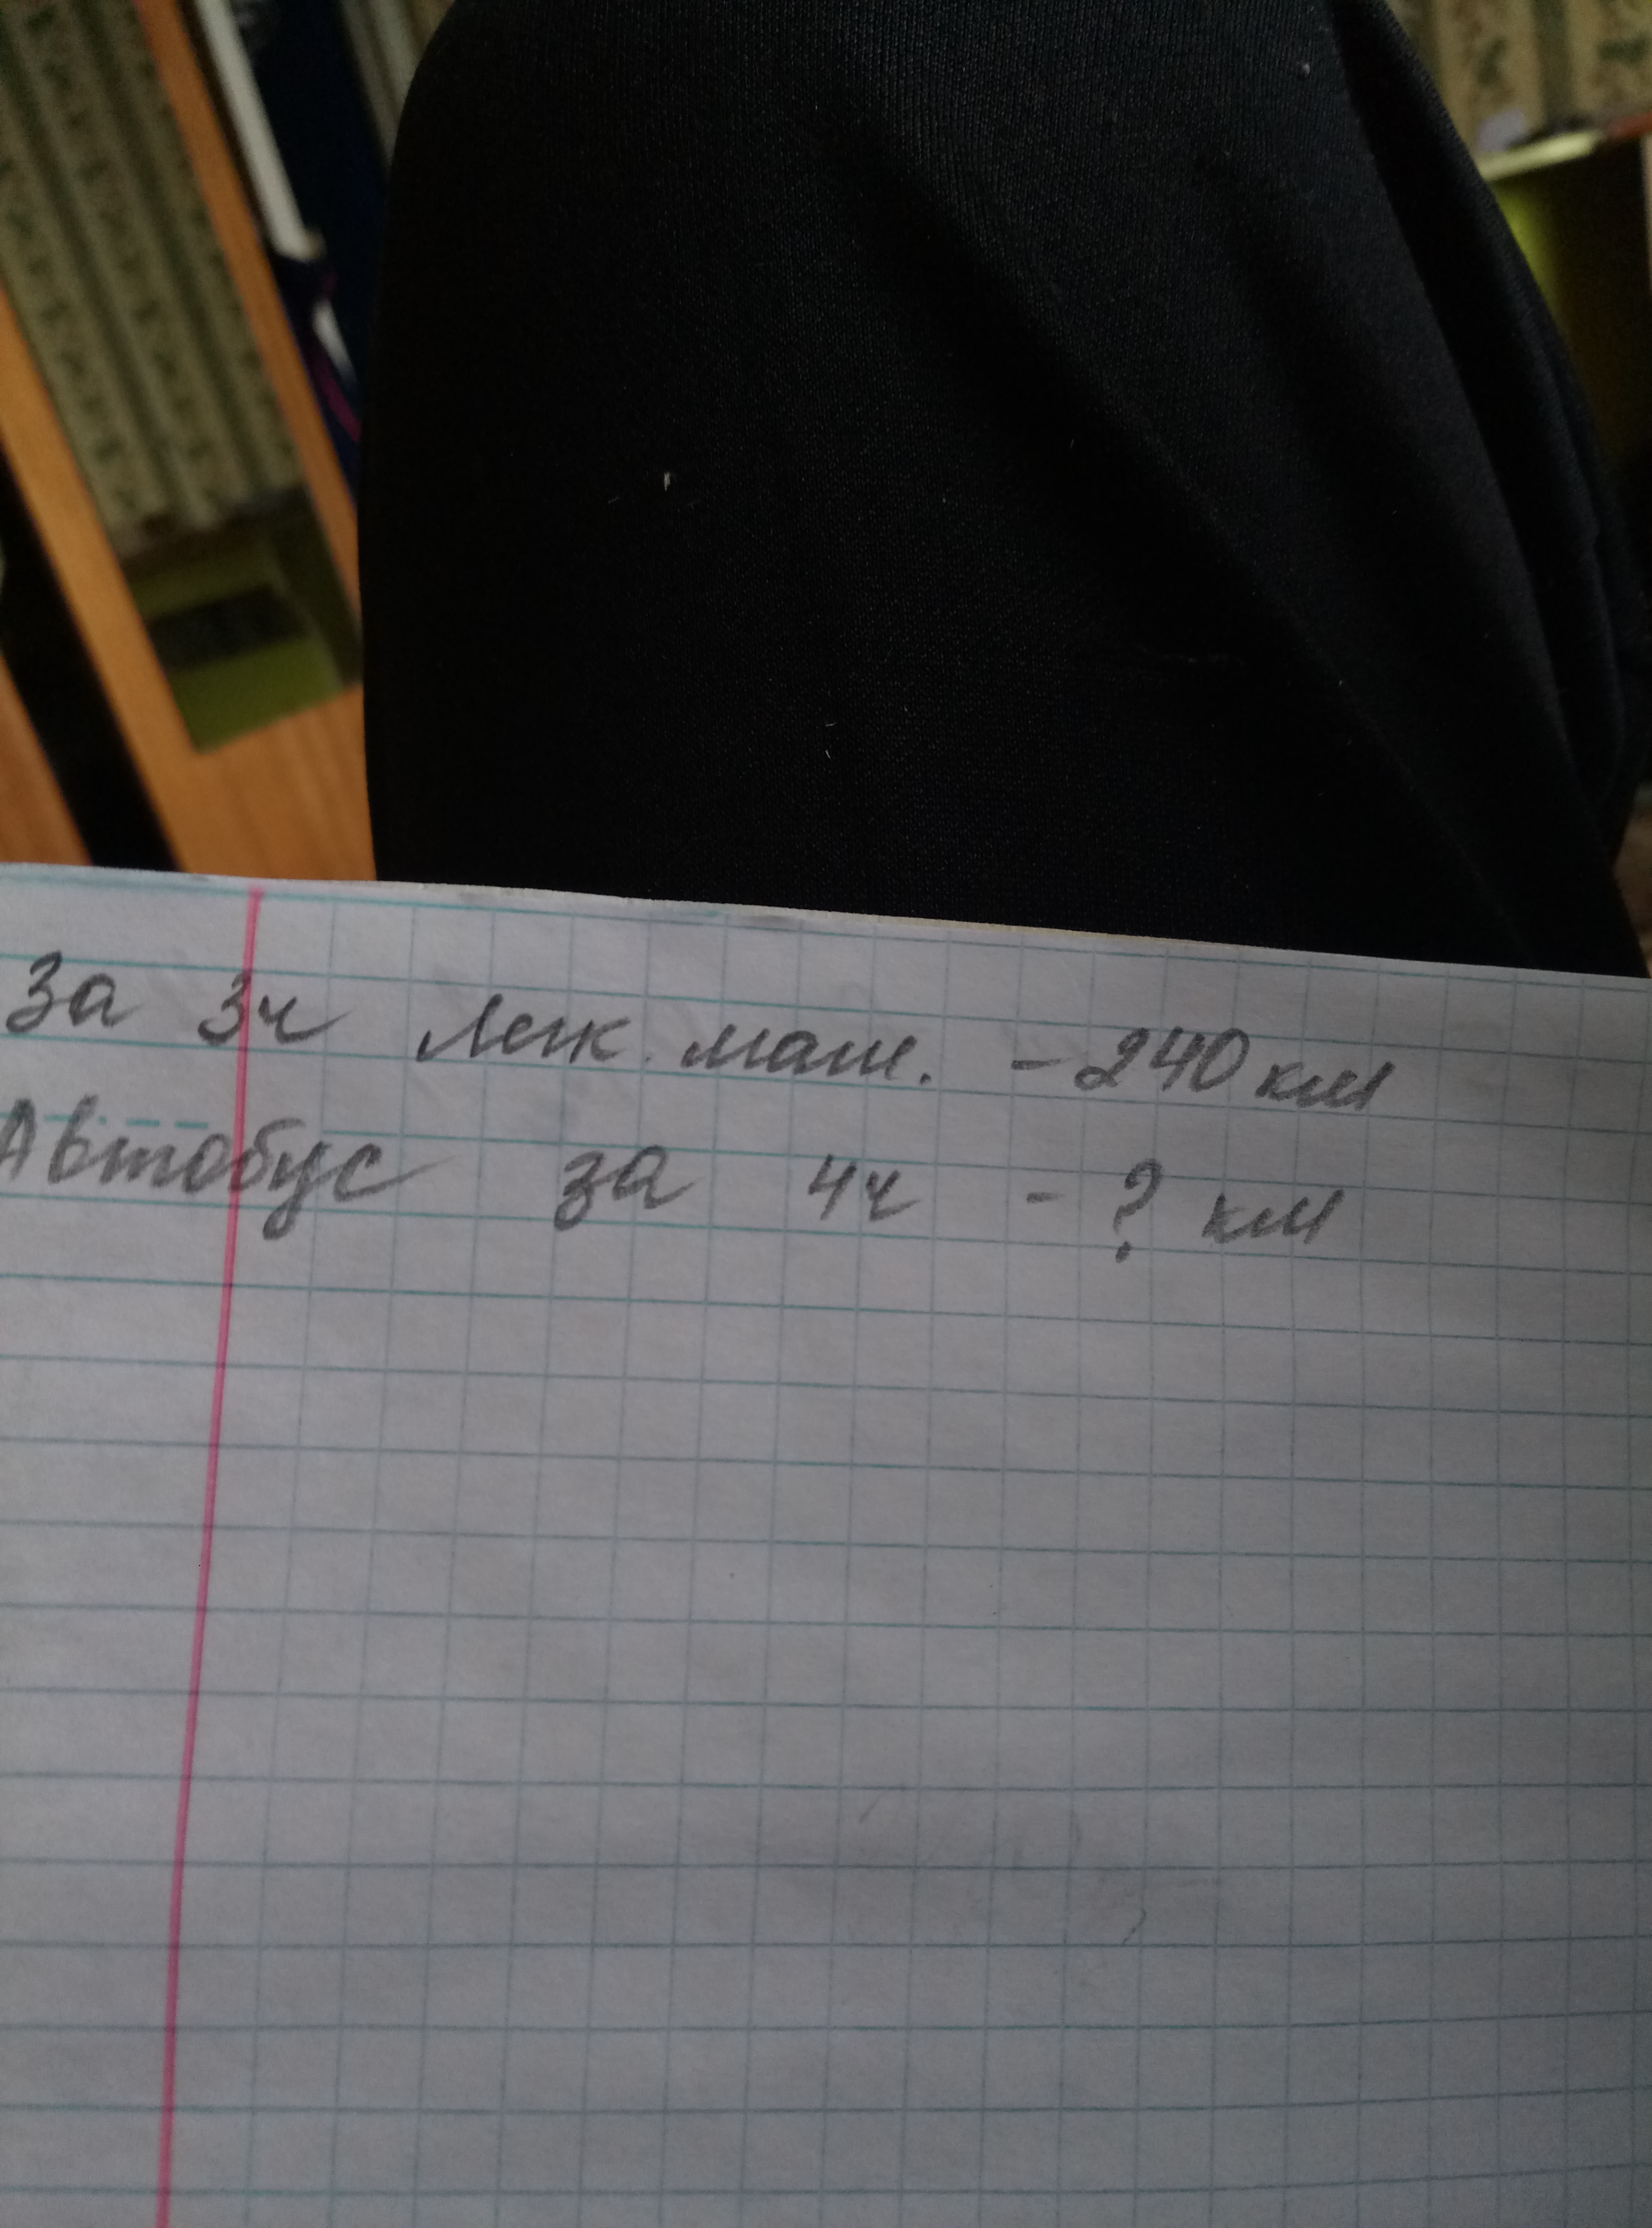 За 3ч легк. маш. - 240 км
Автобус за 4ч - ? км